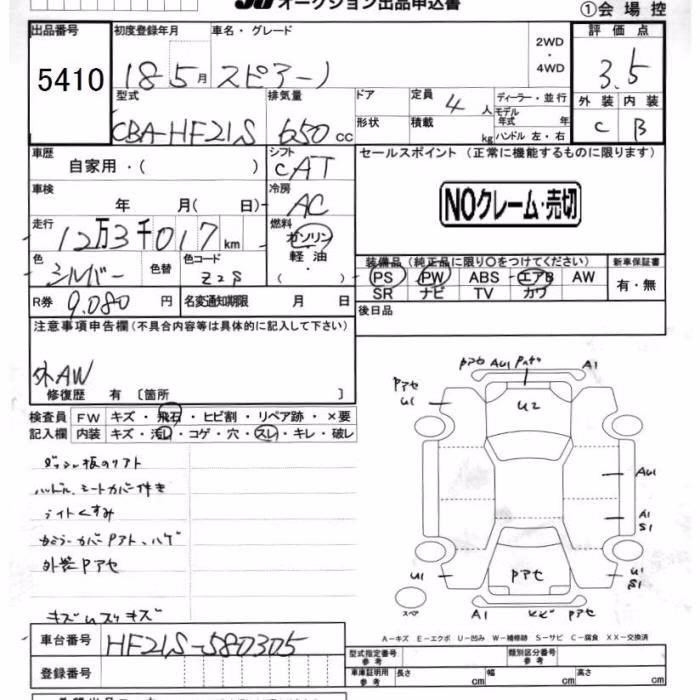 JU オークション出品申込書
①会 場 控
出品番号 初度登録年月 車名・グレード 評 価 点
5410 18-5月 スピアーノ 2WD・4WD 3.5
型式 排気量 ドア 定員 4 人 ディーラー・並行 外 装 内 装
CBA-HF21S 650 cc 形状 積載 kg モデル年式 年 C B
ハンドル 左・右
車歴 シフト セールスポイント (正常に機能するものに限ります)
自家用・( ) CAT
車検 冷房 NOクレーム・売切
年 月( 日) AC
走行 燃料
12万3千017km ガソリン
軽 油
・
( )
装備品 (純正品に限り○をつけてください) 新車保証書
色 色替 色コード PS PW ABS エアB AW 有・無
シルバー Z2S SR ナビ TV カワ
R券 9.080 円 名変通知期限 月 日 後日品
注意事項申告欄(不具合内容等は具体的に記入して下さい)
外AW
修復歴 有 〔箇所 〕
検査員 FW キズ・飛石・ヒビ割・リペア跡・×要
記入欄 内装 キズ・汚レ・コゲ・穴・スレ・キレ・破レ
Pアセ AU1
A1
Pアセ
U1
U2
AU1
A1
S1
ハンドル、シートカバー付き
ライトくすみ
外装Pアセ
U1 Pアセ U1
S1
スペア A1 Pアセ
A-キズ E-エクボ U-凹み W-補修跡 S-サビ C-腐食 XX-交換済
車台番号 HF21S-580305
登録番号
型式指定番号 参 考 類別区分番号 参 考
車庫証明用 参 考 長さ cm 幅 cm 高さ cm